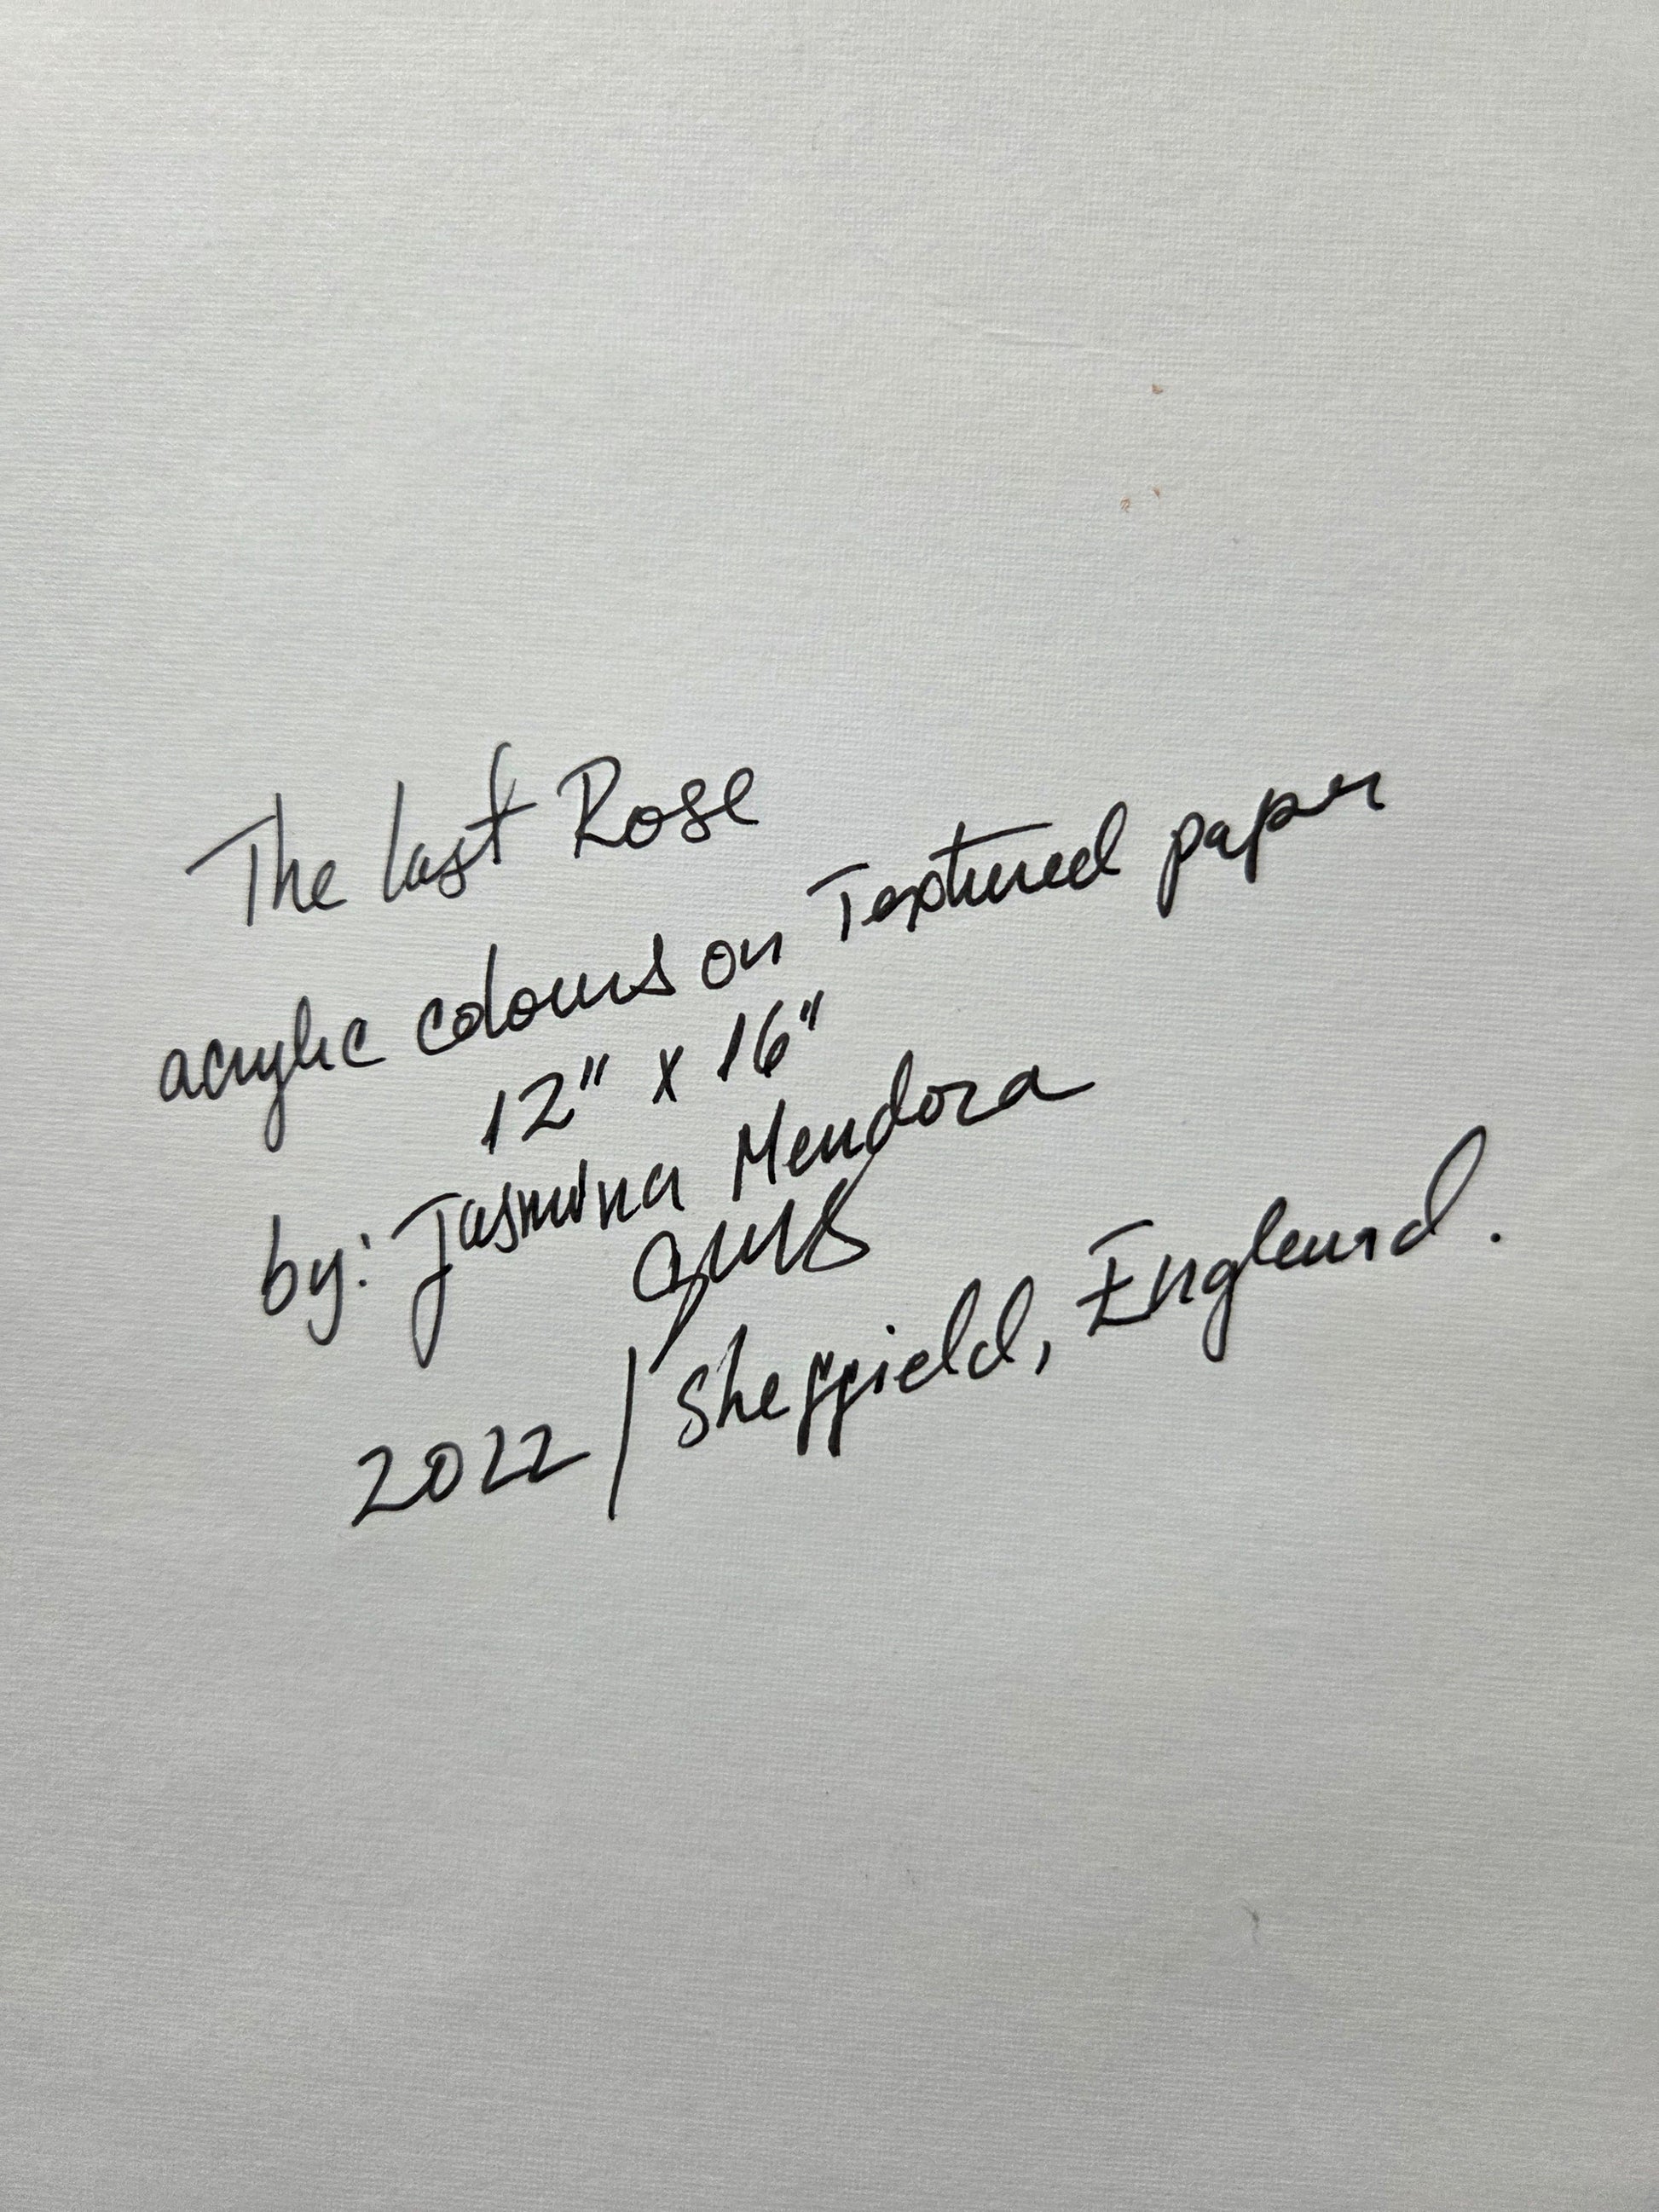 The last Rose
acrylic colours on Textured paper
12" x 16"
by: Jasmina Mendoza
2022 / Sheffield, England.